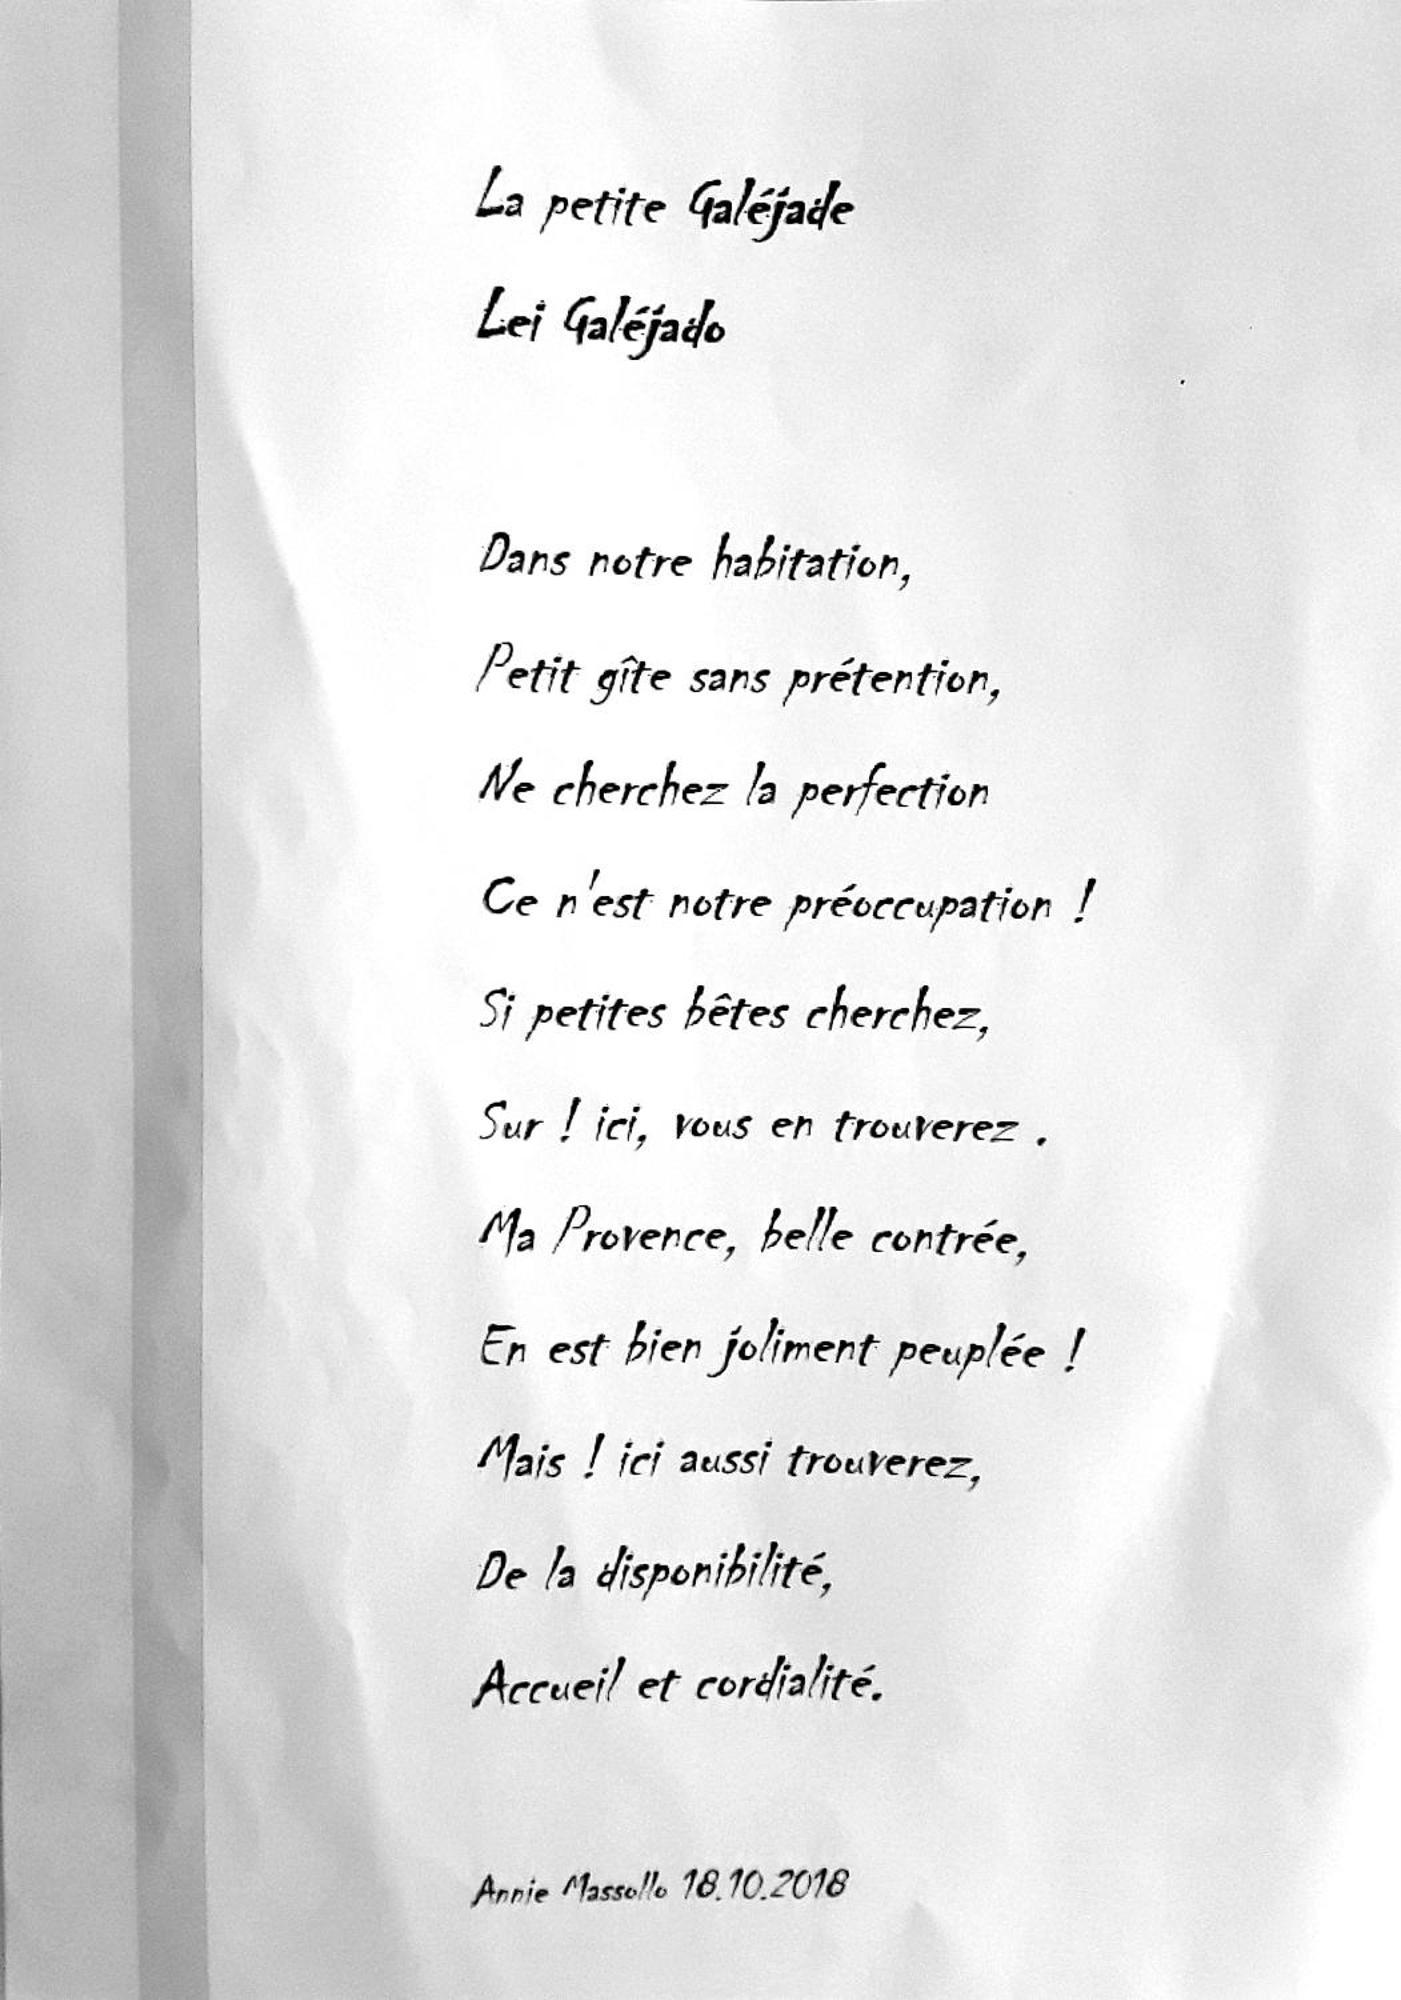 La petite Galéjade
Lei Galéjado
Dans notre habitation,
Petit gîte sans prétention,
Ne cherchez la perfection
Ce n'est notre préoccupation !
Si petites bêtes cherchez,
Sur ! ici, vous en trouverez .
Ma Provence, belle contrée,
En est bien joliment peuplée !
Mais ! ici aussi trouverez,
De la disponibilité,
Accueil et cordialité.
Annie Massollo 18.10.2018